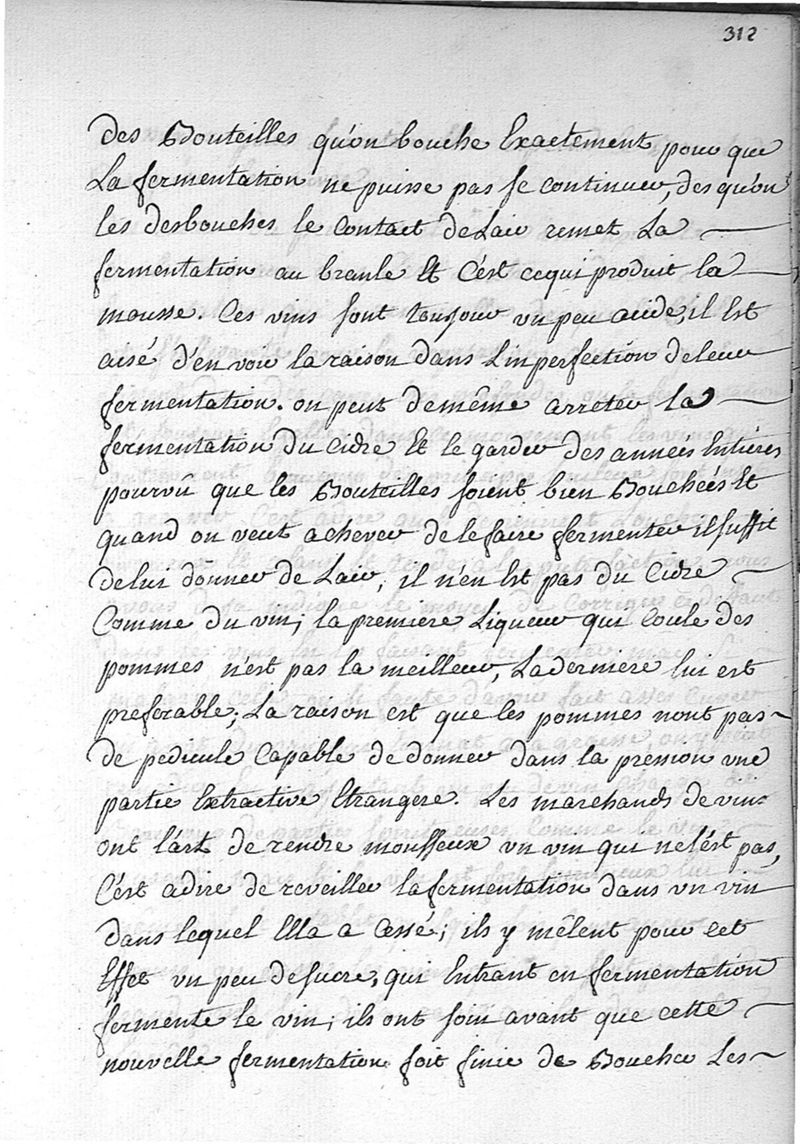 312
des Bouteilles qu'on bouche Exactement pour que
La fermentation ne puisse pas se continuer, des qu'on
les desbouches le Contact de Lair remet La
fermentation au branle Et C'est ce qui produit la
mousse. Ces vins sont toujour un peu acide, il Est
aisé d'en voir la raison dans L'inperfection de leur
fermentation. on peut de même arreter la
fermentation du Cidre Et le garder des années Entiéres
pourvû que les Bouteilles soient bien Bouchéés Et
quand on veut achever de le faire fermenter il suffit
de lui donner de Lair, il n'en Est pas du Cidre
Comme du vin; la premiere Liqueur qui Coule des
pommes n'est pas la meilleur, La derniere lui est
preferable; La raison est que les pommes nont pas
de pedicule Capable de donner dans la pression une
partie Extractive Etrangere. Les marchands de vin
ont l'art de rendre mousseux un vin qui ne l'ést pas,
C'ést adire de reveiller la fermentation dans un vin
dans lequel Ella a Cessé; ils y mêlent pour cet
Effet un peu de sucre, qui Entrant en fermentation
fermente le vin; ils ont soin avant que cette
nouvelle fermentation soit finie de Boucher Les